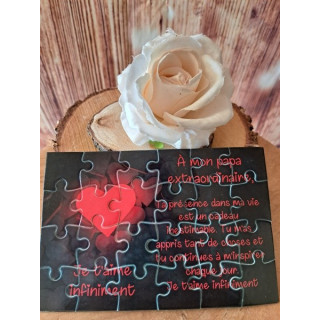 À mon papa
extraordinaire,
Ta présence dans ma vie
est un cadeau
inestimable. Tu m'as
appris tant de choses et
tu continues à m'inspirer
chaque jour.
Je t'aime infiniment
Je t'aime
infiniment